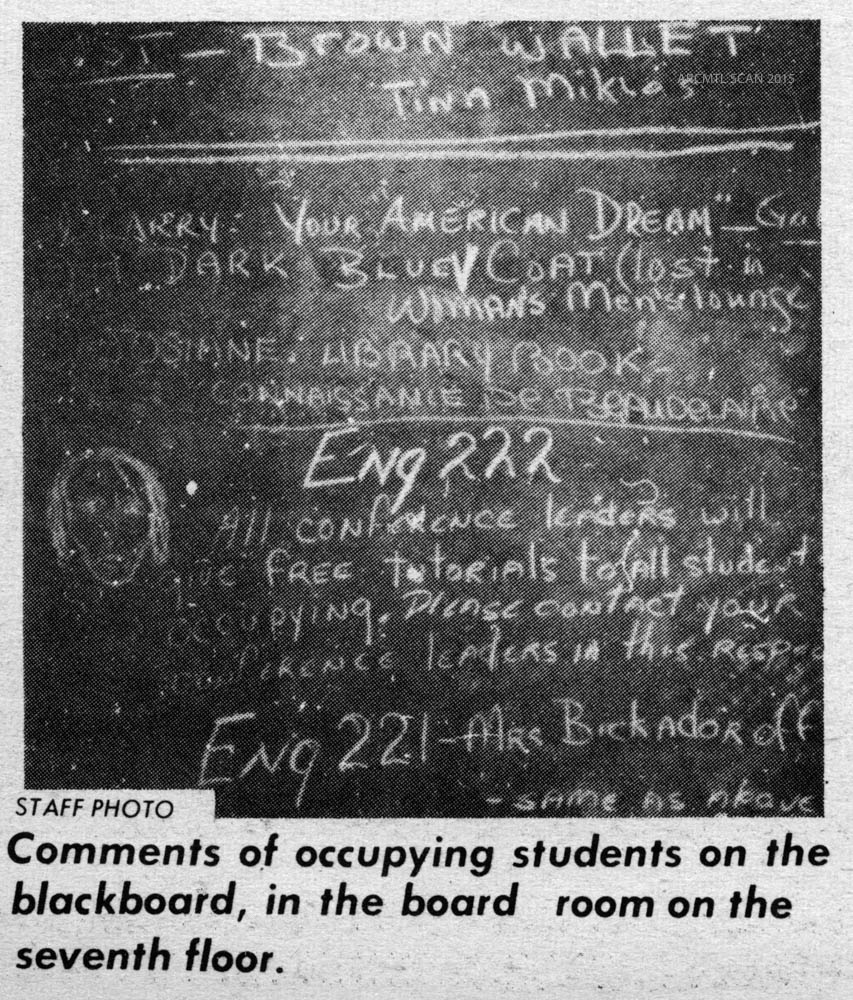 — BROWN WALLET
ARCMTL SCAN 2015
Tina Miklos
YOUR "AMERICAN DREAM" —
DARK BLUE COAT (lost in
WOMAN'S Men's lounge
LIBRARY BOOK -
CONNAISSANCE DE BEAUDELAIRE
Eng 222
All CONFERENCE leaders will
give FREE tutorials to all student
occupying. Please contact your
conference leaders in this
Eng 221 - Mrs
- same as above
STAFF PHOTO
Comments of occupying students on the
blackboard, in the board room on the
seventh floor.